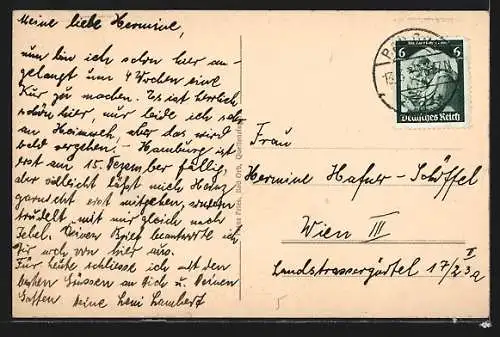 Meine liebe Hermine,
nun bin ich schon hier an-
gelangt um 4 Wochen eine
Kur zu machen. Es ist herrlich
schön hier, nur leide ich sehr
an Heimweh, aber das wird
bald vergehen. – Hamburg ist
erst am 15. Dezember fällig,
aber vielleicht läßt mich Heinz
garnicht erst mitgehen, sondern
trudelt mit mir gleich nach
Deinen Brief beantworte ich
Dir noch von hier aus.
Für heute schliesse ich mit den
besten Grüssen an Dich u. Deinen
Gatten. Deine Leni Lambert
6 6
Deutsches Reich
Bad Orb, Quellenstraße
Frau
Hermine Hafner-Schöffel
Wien III
Landstrassergürtel 17/23a
II
5